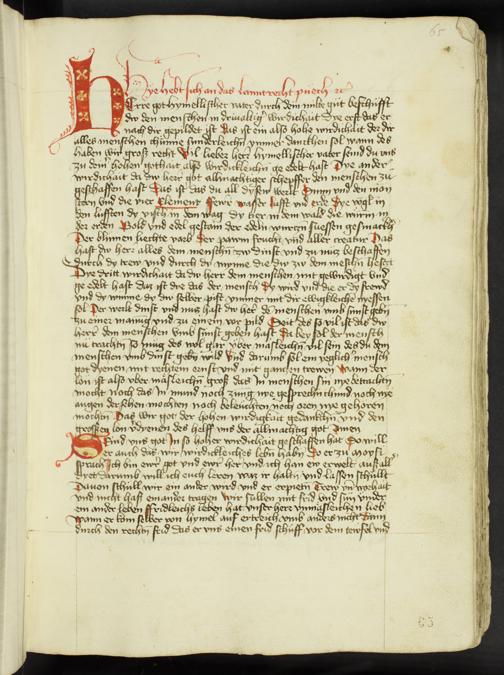 65
Hye hebt sich an das lanntrecht puech ꝛc
Herre got hymellischer vater durch dein milte güt beschüfft
du den menschen in driualtig wirdichait die erst das er
nach dir gepildet ist das ist ein also hohe wirdichait der dir
alles menschen chünne sunderleichn ymmer danckhen sol wann des
haben wir groß recht Vil lieber herr hymellischer vater seind du uns
zu dein hohen gothait also wirdickleichn ge edelt hast Die ander
wirdichait da du herr got allmächtiger schepffer den menschen zu
geschaffen hast Das ist das du all dyse welt Sunn und den mon
stern und die vier Element Fewr wasser lufft und erde Die vögl in
den lufften dy visch in dem wag dy tier in dem wald die würm in
der erden Gold und edel gestain der edeln würtzn süessen gesmachk
Der blümen liechte varb Der pawm frucht und aller creatur Das
hast du herr alles dem menschn zw dinst und zu nutz beschaffen
durch dy trew und durch dy mynne die du zu dem menschn hetest
Die dritt wirdichait da du herr den menschen mit gewirdigt und
ge edelt hast das ist die das der mensch dy wird und die er dy frewd
und dy wunne dy du selber pist ymmer mit dir ewigkleiche niessen
sol Der welt dinst und nutz hast du herr dem menschen umb sunst gebn
zu einer manung und zu einem vor pild Seit des so vil ist das du
herr dem menschen umb sunst geben hast Da bey sol der mensch
nu trachtn so mug des wol gar über mässleichn vil sein des du dem
menschen umb dinst gebn wild Und darumb sol ein yeglich mensch
got dyenen mit rechtem ernst und mit gantzen trewen Wann der
lon ist also über mässleichn groß das in menschen sin nye betrachtn
mocht noch das in mund noch zung nye gesprechn chund noch nye
augen dersehen mochten noch beleuchten noch oren nye gehoren
mochtn Das wir got der hohen wirdigkait gedanckhn und den
grossen lon verdyenen des helff uns der allmächtig got Amen
Seind uns got in so hoher wirdichait geschaffen hat So will
er auch das wir wirdickleiches lebn habn Der er zu moysi
sprach Ich bin ewr got und ewr herr und ich han ew erwelt auß all
diet darumb will ich euch leren was ir habn und lassen schullt
Davon schüll wir ein ander wird und er erpieten Trew und warhait
und nicht hass einander tragen Wir süllen mit frid und sün under
ein ander leben fridleichs leben hat unser herr unmässleichen lieb
Wann er kom selber von hymel auf ertreich umb anders nicht dann
durch den rechtn frid das er uns einen frid schüff vor dem tewfel und
65